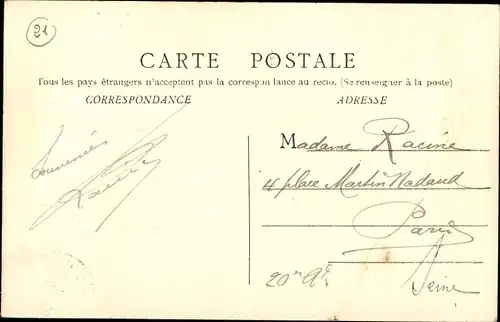 21
CARTE POSTALE
Tous les pays étrangers n'acceptent pas la correspondance au recto. (Se renseigner à la poste)
CORRESPONDANCE
ADRESSE
Souvenirs
Madame Racine
4 place Martin Nadaud
Paris
20me Ar
Seine